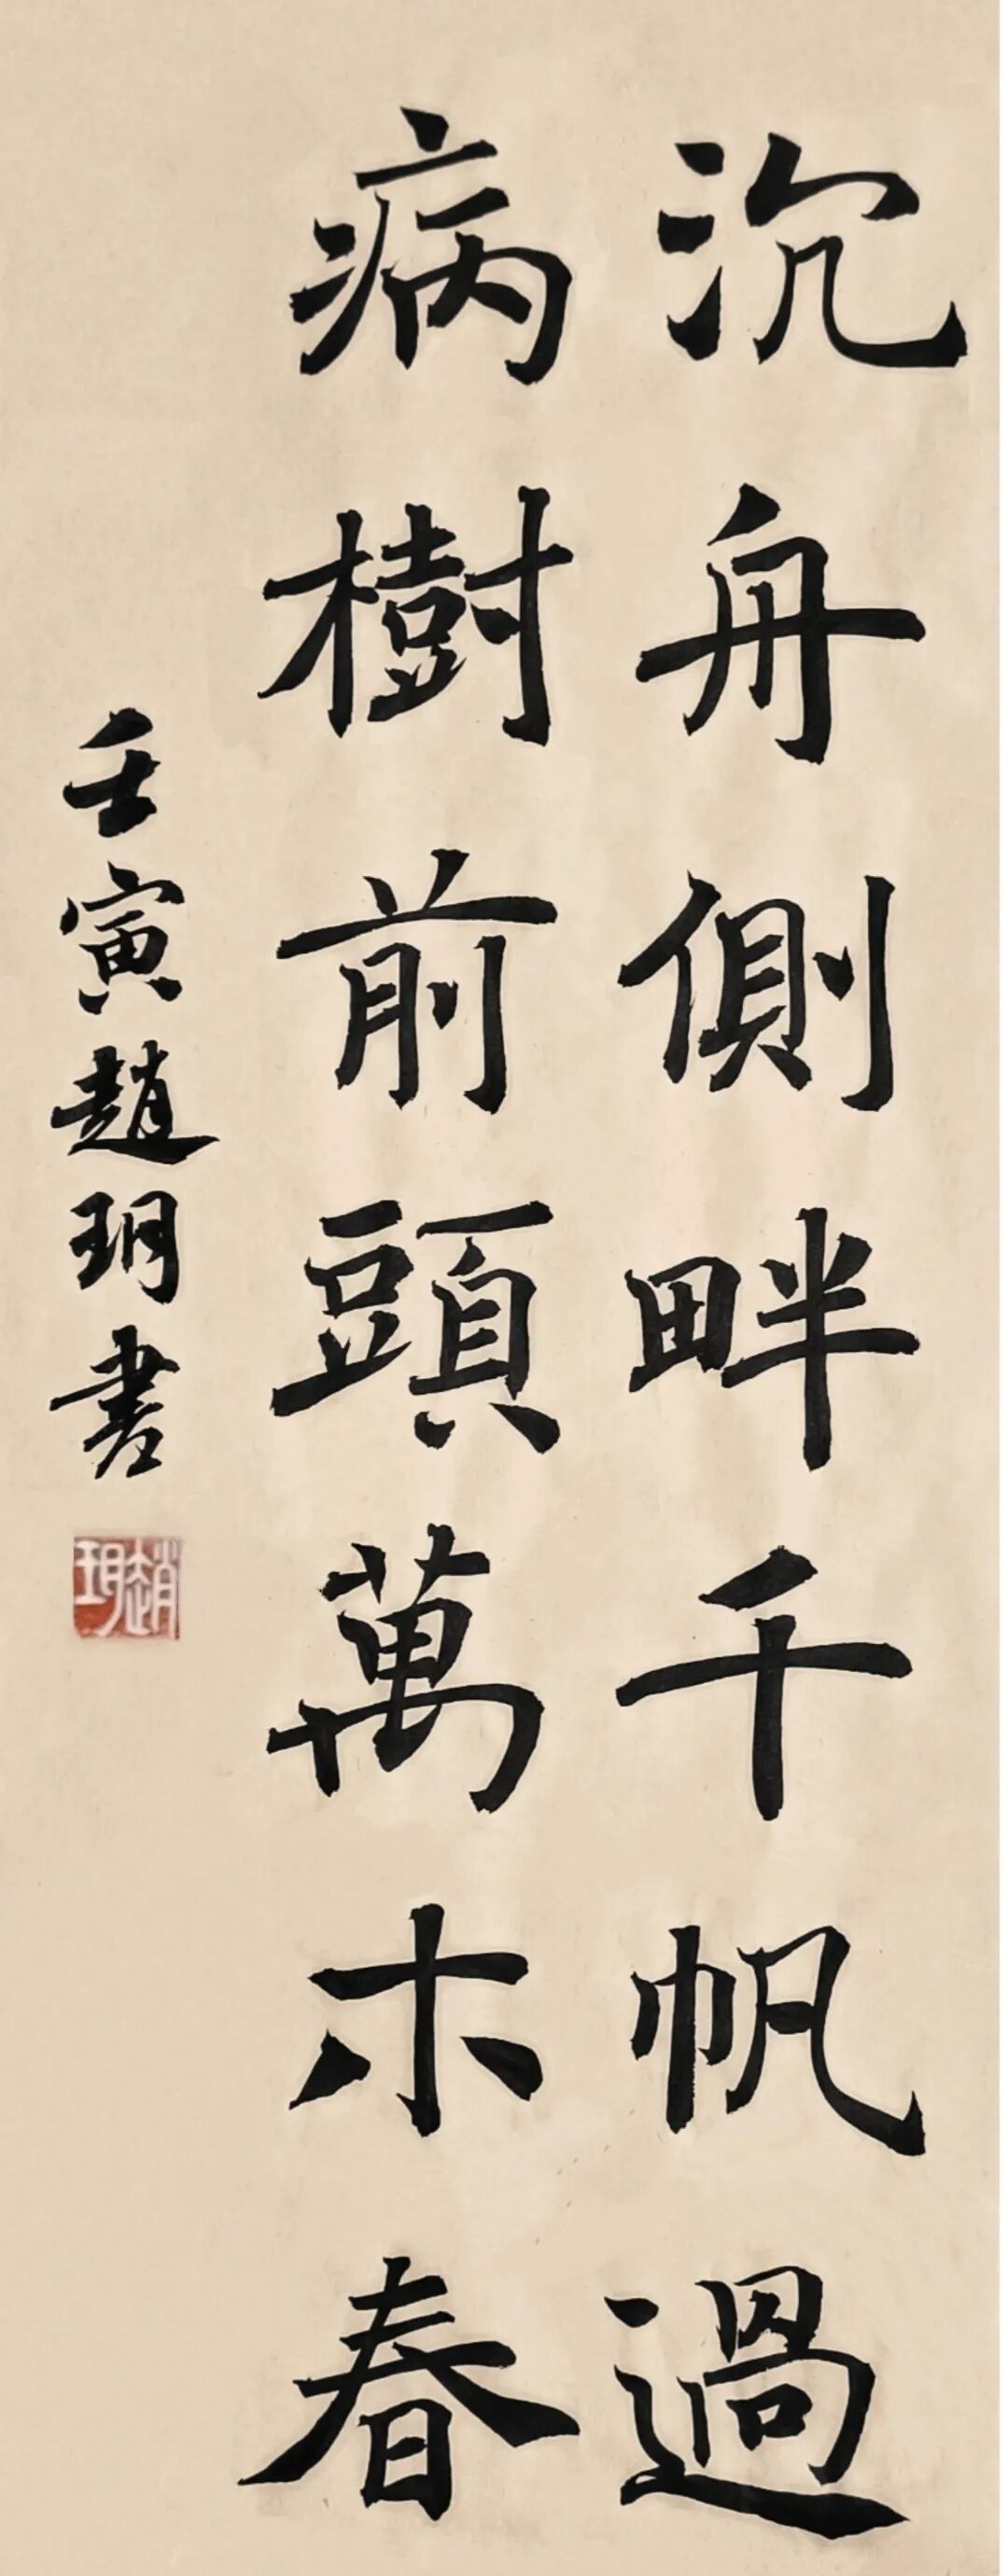 沉舟側畔千帆過
病樹前頭萬木春
壬寅趙玥書
趙玥